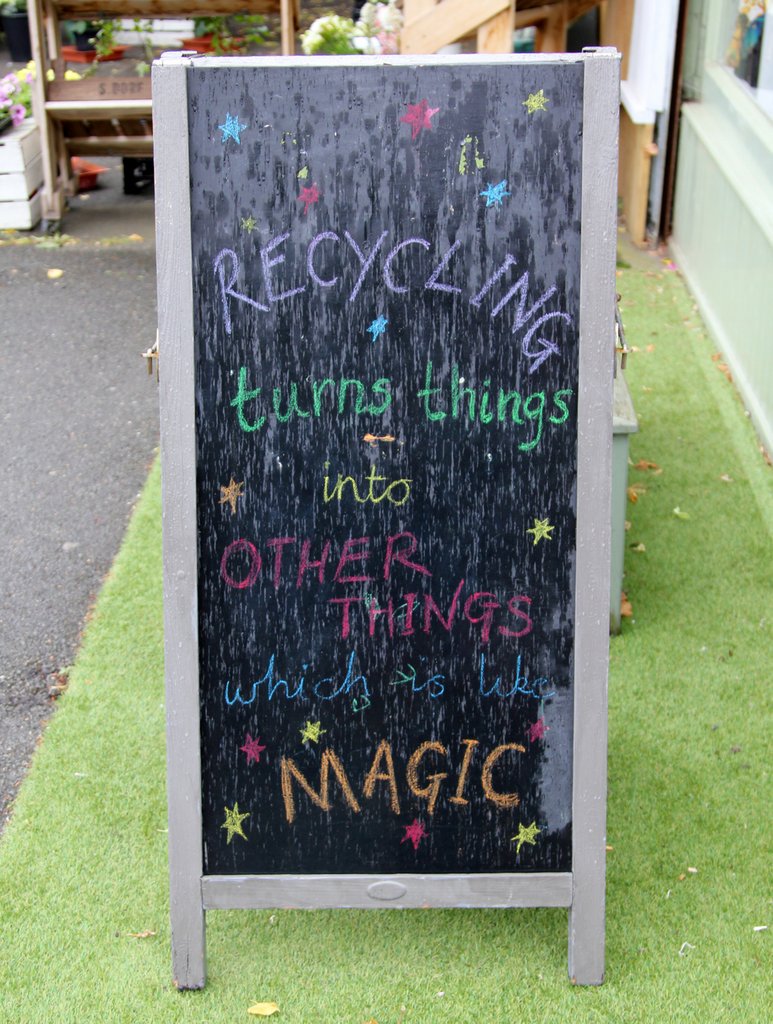 RECYCLING
turns things
into
OTHER
THINGS
which is like
MAGIC